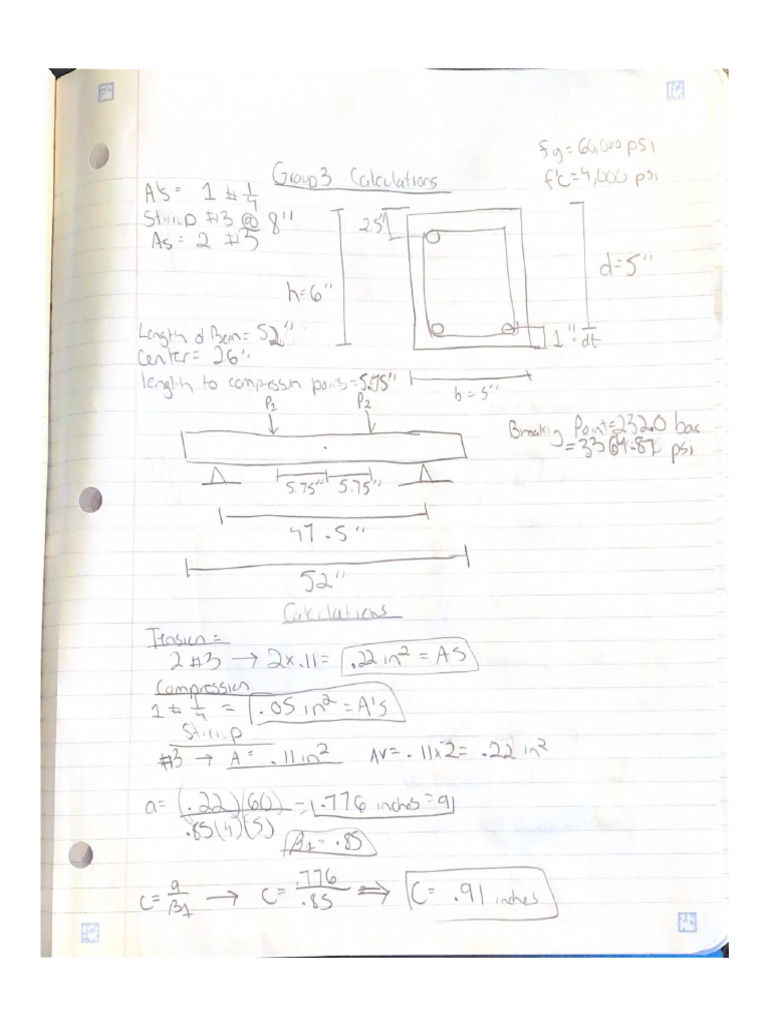 fy = 60,000 psi
Group 3 Calculations
f'c = 4,000 psi
A's = 1 # 1/4
Stirrup #3 @ 8"
As = 2 #3
.25"
d=5"
h=6"
1"
dt
Length of Beam = 52"
Center = 26"
length to compression points = 5.75"
b = 5"
P1 P2
Breaking Point = 232.0 bar
= 3364.87 psi
5.75" 5.75"
47.5"
52"
Calculations
Tension =
2 #3 → 2x.11 = .22 in² = AS
Compression
1 # 1/4 = .05 in² = A's
Stirrup
#3 → A = .11 in² AV = .11x2 = .22 in²
a = (.22)(60) / .85(4)(5) = .776 inches = a
β1 = .85
C = a/β1 → C = .776/.85 ⇒ C = .91 inches